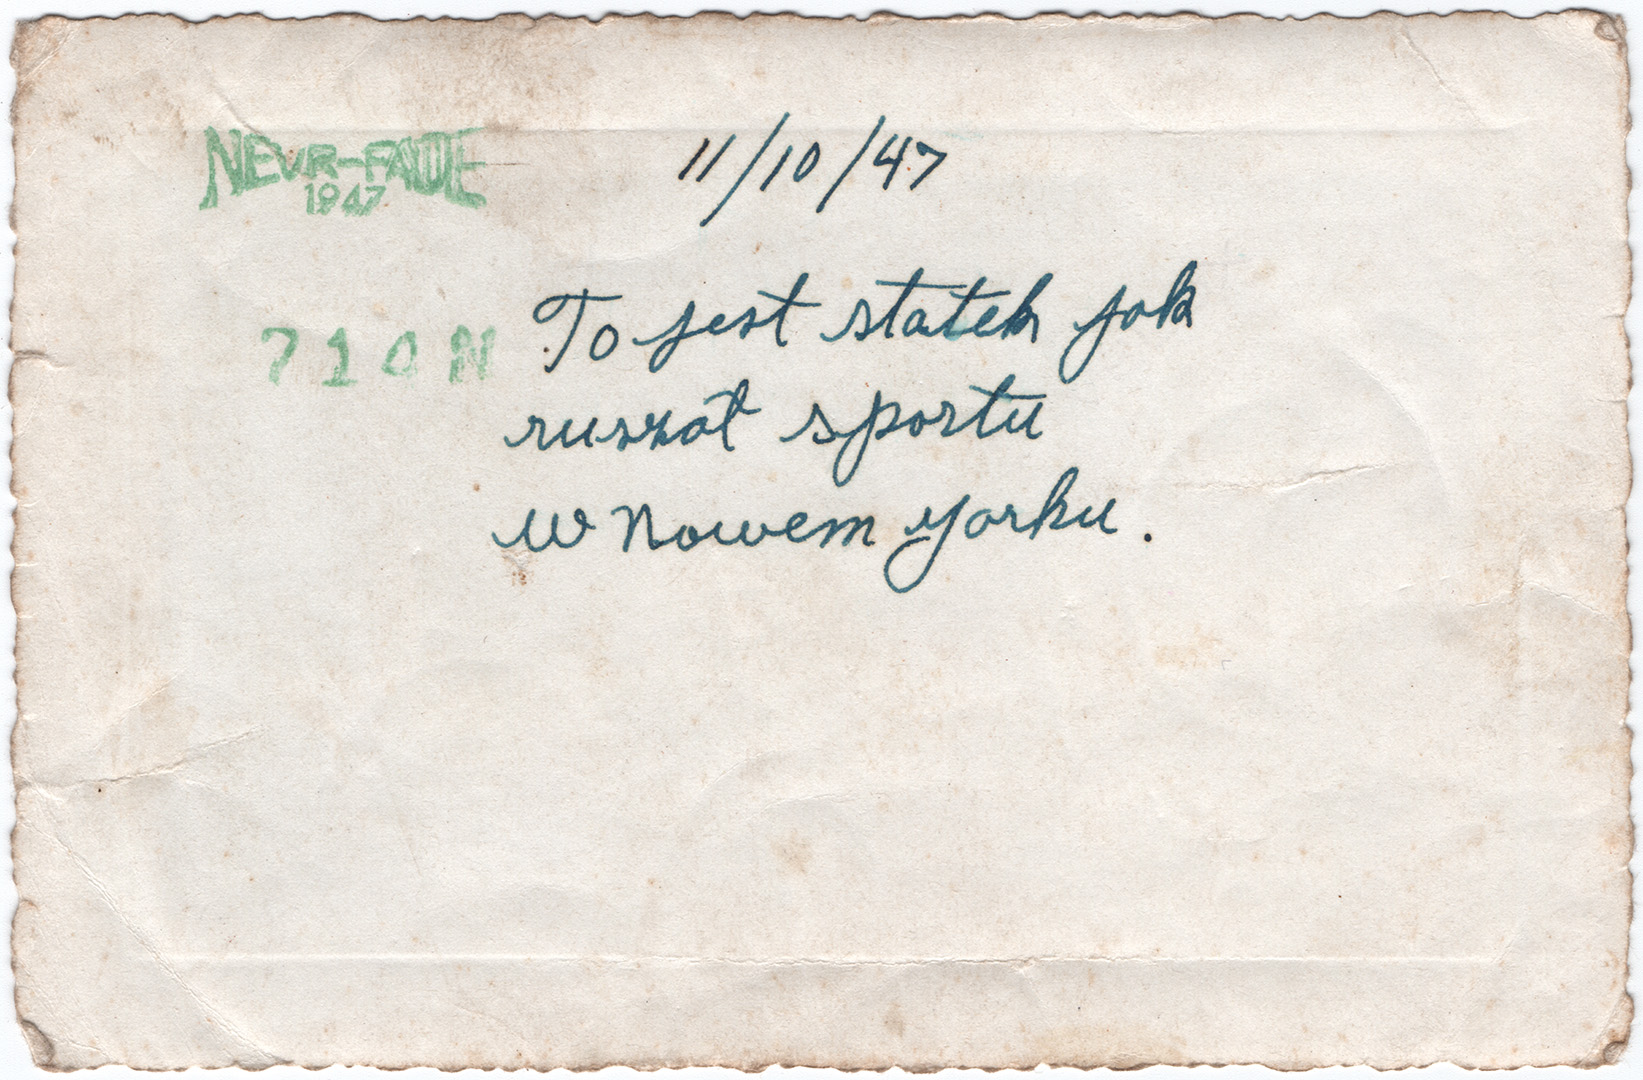 NEVR-FADE
1947
11/10/47
710N
To jest statek jak
ruszał sportu
w Nowem Yorku.